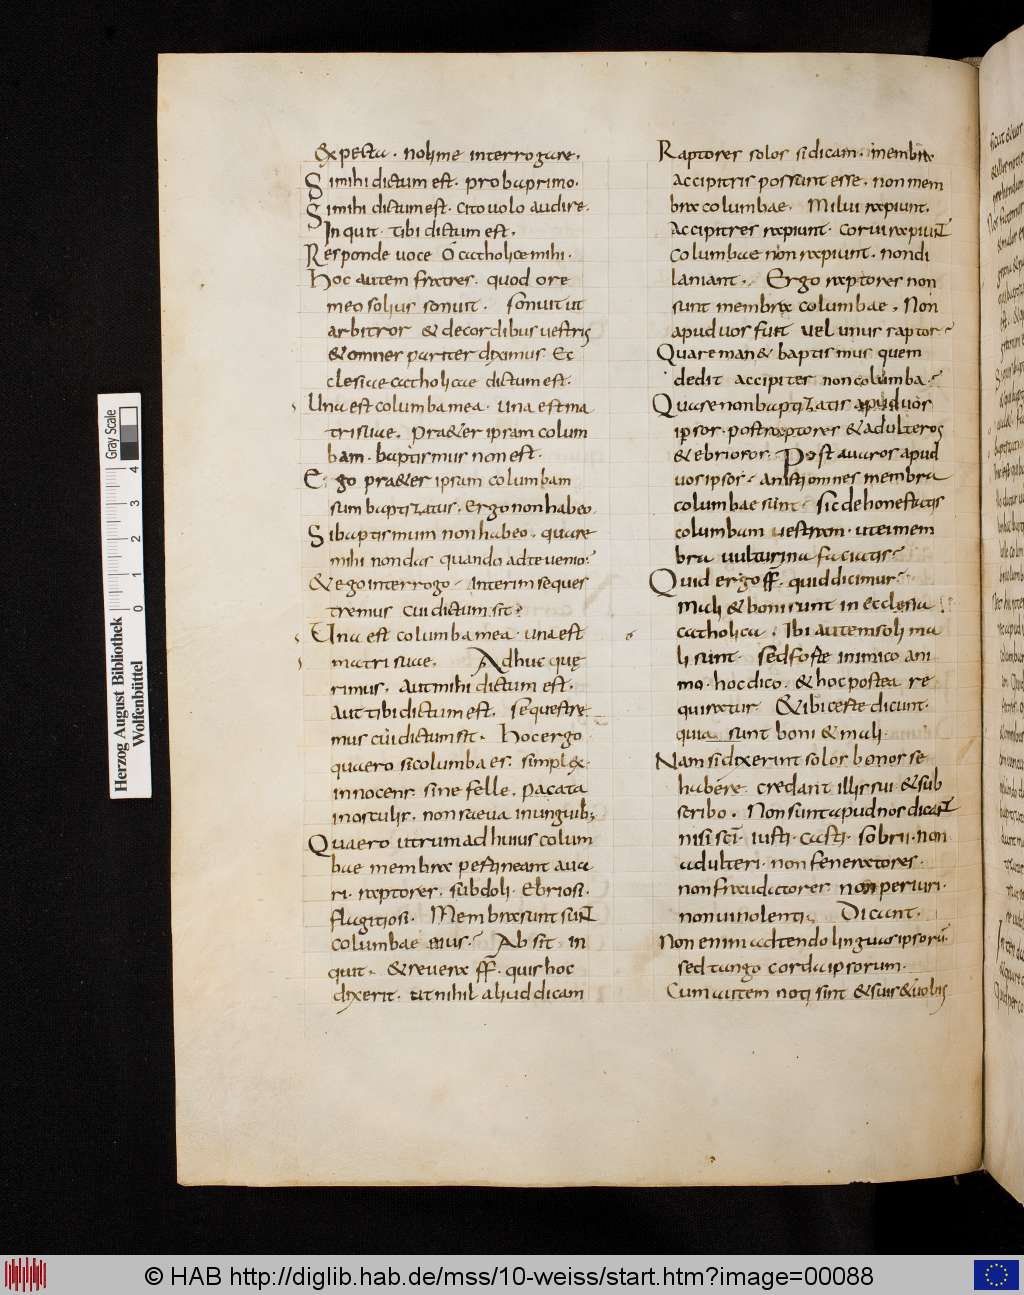 expecta. noli me interrogare.
Si mihi dictum est. probo primo.
Si mihi dictum est. cito volo audire.
Inquit. tibi dictum est.
Responde voce o catholice mihi.
Hoc autem fratres. quod ore
meo solius sonuit. sonuit ut
arbitror & de cordibus vestris
& omnes pariter diximus Ec
clesiae catholicae dictum est.
Una est columba mea. una est ma
tri suae. Praeter ipsam colum
bam. baptismus non est.
Ergo praeter ipsam columbam
sum baptizatus. Ergo non habeo.
Si baptismum non habeo. quare
mihi non das quando ad te venio?
& ego interrogo. Interim seques
tremus cui dictum sit?
Una est columba mea. una est
matri suae. Adhuc quę
rimus. Aut mihi dictum est.
Aut tibi dictum est. sequestre
mus cui dictum sit. Hoc ergo
quaero si columba es. simplex.
innocens. sine felle. pacata
in osculis. non saeva in unguib;
Quaero utrum ad huius colum
bae membra pertineant ava
ri. raptores. subdoli. Ebriosi.
flagitiosi. Membra sunt sunt
columbae eius? Absit. in
quit. & revera ff. quis hoc
dixerit. ut nihil aliud dicam
Raptores solos si dicam. membra
accipitris possunt esse. non mem
bra columbae. Milui rapiunt.
Accipitres rapiunt. Corui rapiunt
Columbae non rapiunt. non di
laniant. Ergo raptores non
sunt membra columbae. Non
apud vos fuit vel unus raptor?
Quare man& baptismus quem
dedit accipiter non columba?
Quare non baptizatis apud vos
ipsos. post raptores & adulteros
& ebriosos. Post avaros apud
vos ipsos. An isti omnes membra
columbae sunt. Sic dehonestatis
columbam vestram. ut ei mem
bra vulturina faciatis?
Quid ergo ff. quid dicimus?
Mali & boni sunt in ecclesia
catholica. Ibi autem soli ma
li sunt. sed forte inimico ani
mo. hoc dico. & hoc postea re
quiratur. & ibi certe dicunt.
quia sunt boni & mali.
Nam si dixerint solos bonos se
habere. credant illis sui & sub
scribo. Non sunt apud nos dicant
nisi sci. iusti. casti. sobrii. non
adulteri. non feneratores.
non fraudatores non periuri.
non vinolenti. Dicant.
Non enim adtendo linguas ipsorum.
sed tango corda ipsorum.
Cum autem noti sint & suis & vobis
Gray Scale
4
3
2
1
0
Herzog August Bibliothek
Wolfenbüttel
© HAB http://diglib.hab.de/mss/10-weiss/start.htm?image=00088